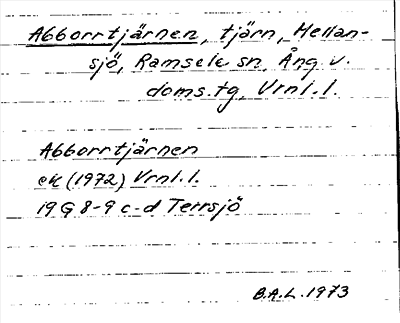 Abborrtjärnen, tjärn, Mellan-
sjö, Ramsele sn, Ång. v.
doms.tg, Vrnl.l.
Abborrtjärnen
ek (1972) Vrnl.l.
19 G 8-9 c-d Terrsjö
B.A.L. 1973